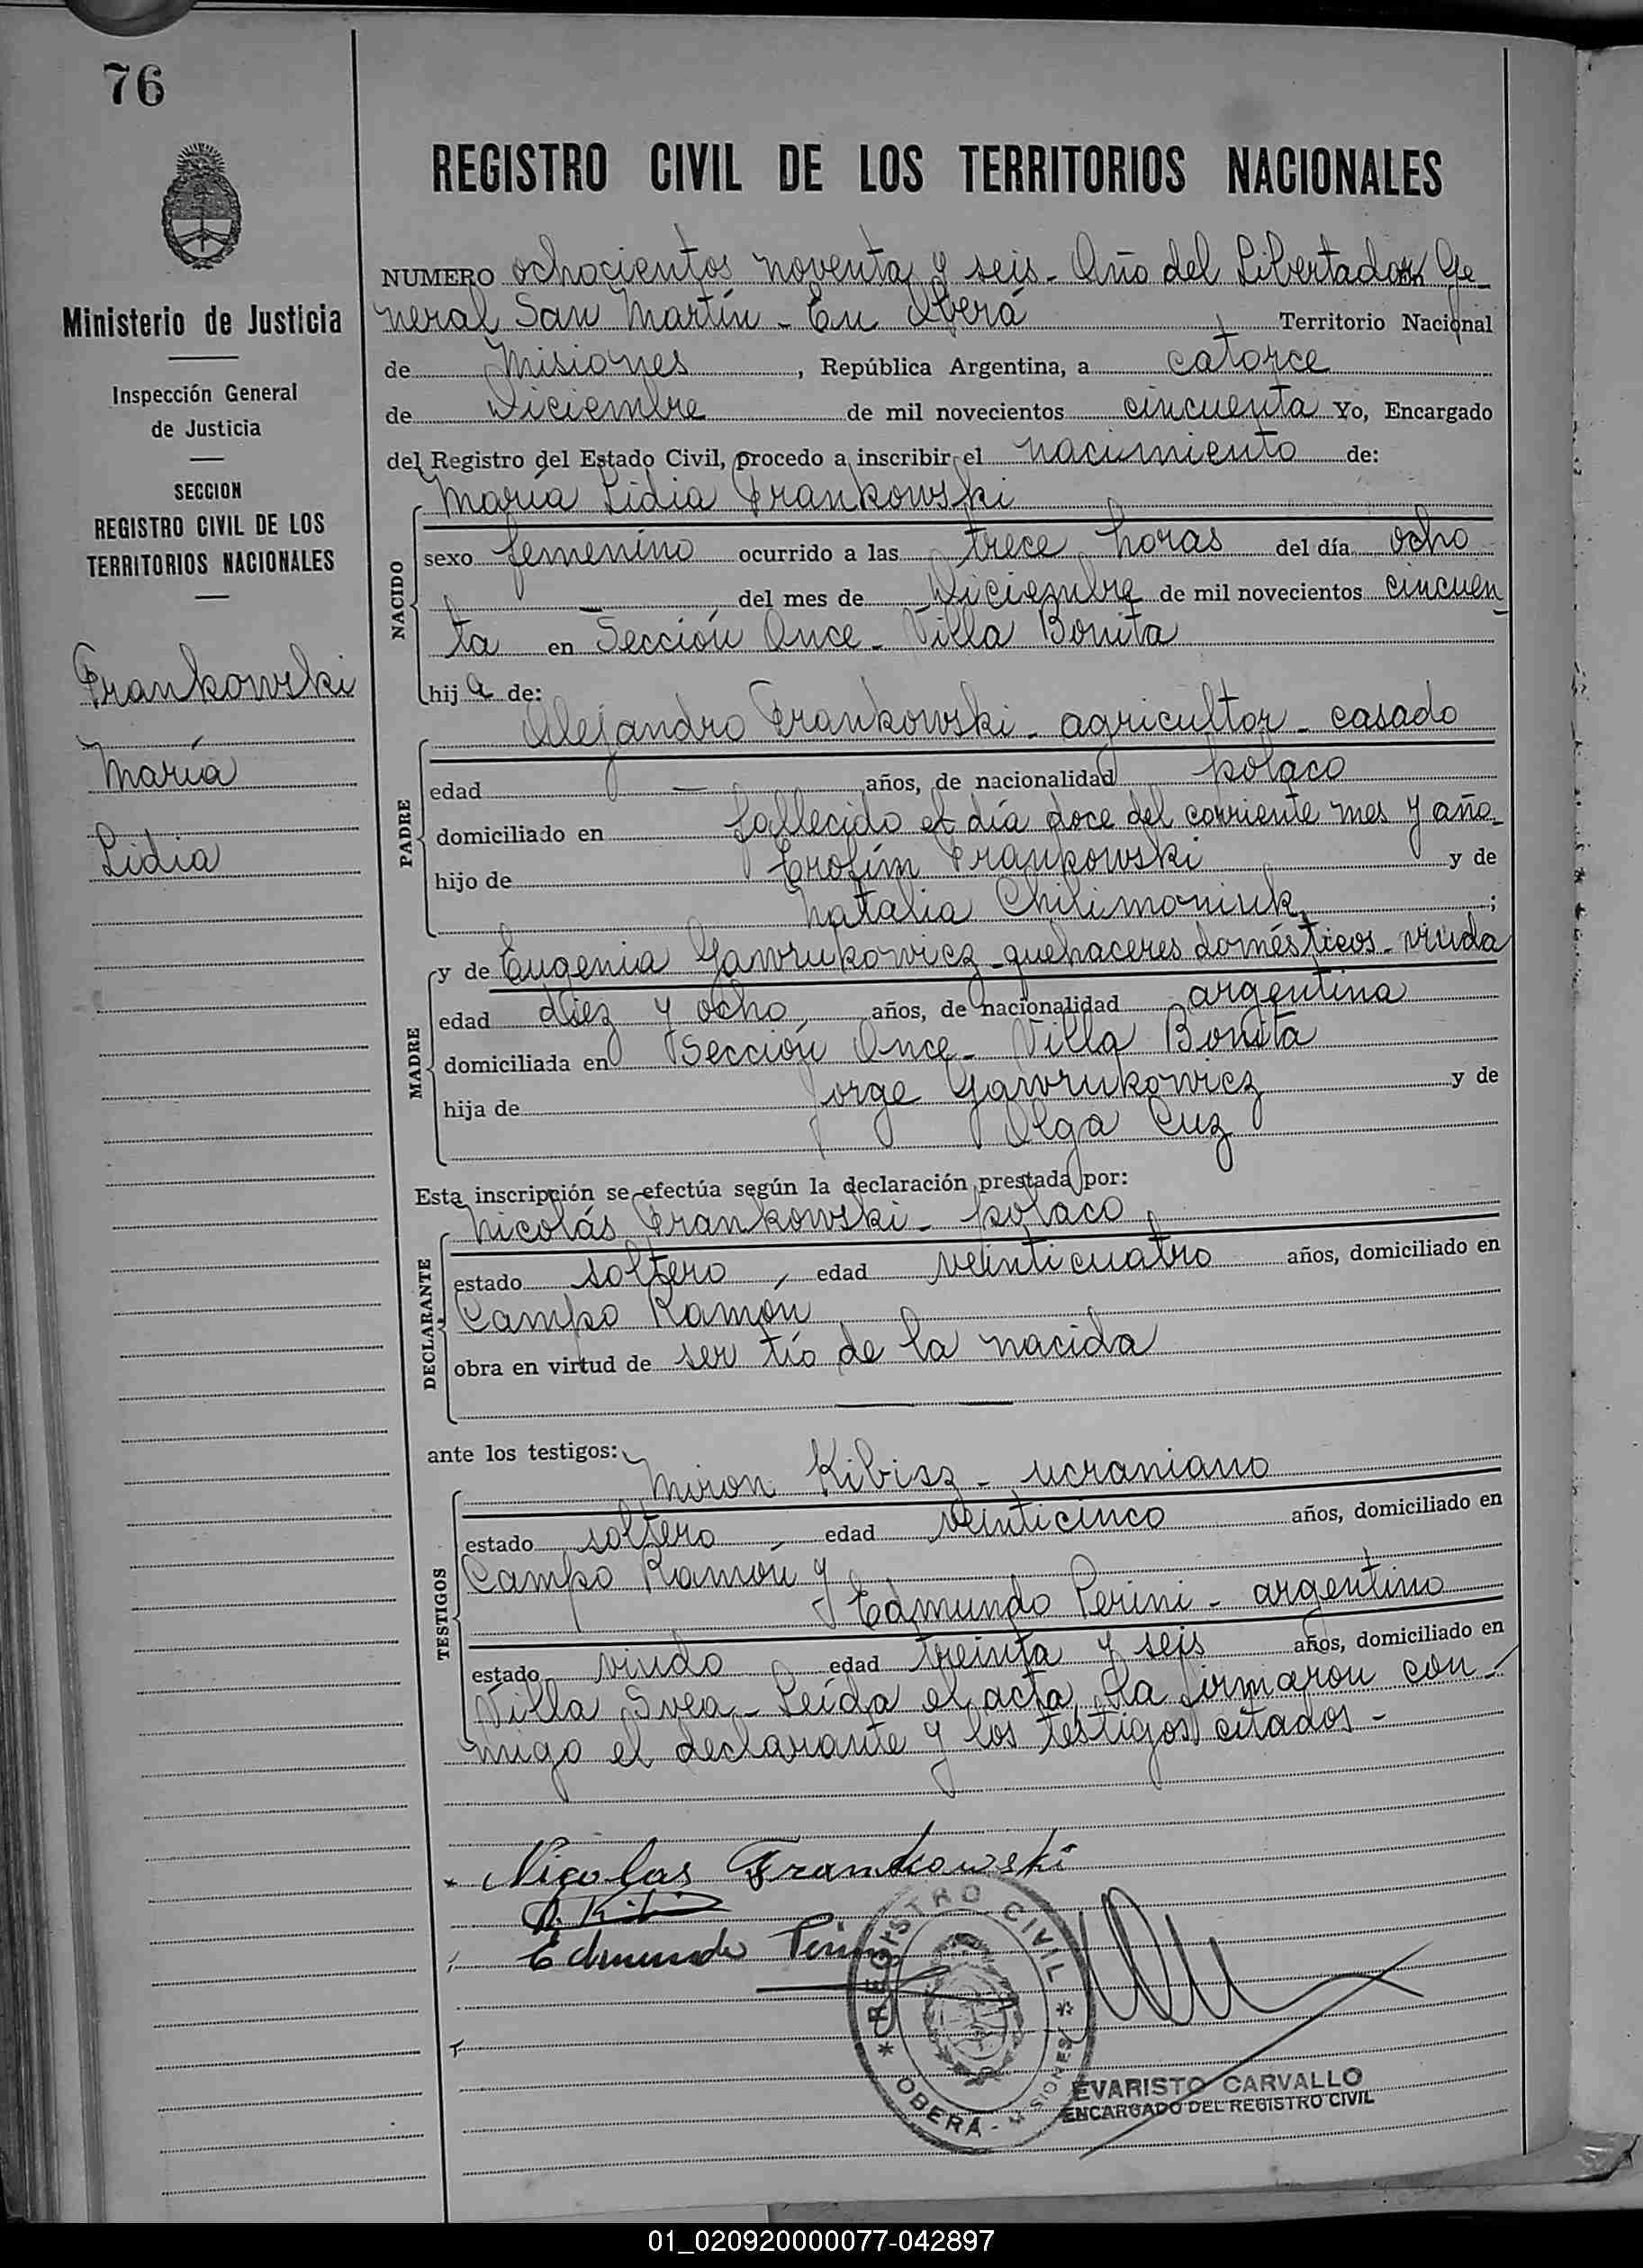 76
REGISTRO CIVIL DE LOS TERRITORIOS NACIONALES
Ministerio de Justicia
Inspección General
de Justicia
SECCION
REGISTRO CIVIL DE LOS
TERRITORIOS NACIONALES
Frankowski
María
Lidia
NUMERO ochocientos noventa y seis - Año del Libertador Ge-
neral San Martín - En Oberá Territorio Nacional
de Misiones, República Argentina, a catorce
de Diciembre de mil novecientos cincuenta Yo, Encargado
del Registro del Estado Civil, procedo a inscribir el nacimiento de:
NACIDO
María Lidia Frankowski
sexo femenino ocurrido a las trece horas del día ocho
— del mes de Diciembre de mil novecientos cincuen-
ta en Sección Once - Villa Bonita
hija de:
PADRE
Alejandro Frankowski - agricultor - casado
edad — años, de nacionalidad polaco
domiciliado en fallecido el día doce del corriente mes y año -
hijo de Trofím Frankowski y de
Natalia Chilimoniuk ;
MADRE
y de Eugenia Gawrukowicz - quehaceres domésticos - viuda
edad diez y ocho años, de nacionalidad argentina
domiciliada en Sección Once - Villa Bonita
hija de Jorge Gawrukowicz y de
Olga Cuz
Esta inscripción se efectúa según la declaración prestada por:
DECLARANTE
Nicolás Frankowski - polaco
estado soltero, edad veinticuatro años, domiciliado en
Campo Ramón
obra en virtud de ser tío de la nacida
ante los testigos:
TESTIGOS
Miron Kibisz - ucraniano
estado soltero, edad veinticinco años, domiciliado en
Campo Ramón y
Edmundo Perini - argentino
estado viudo edad treinta y seis años, domiciliado en
Villa Svea - Leída el acta, la firmaron con-
migo el declarante y los testigos citados -
Nicolas Frankowski
Edmundo Perini
REGISTRO CIVIL
OBERÁ - MISIONES
EVARISTO CARVALLO
ENCARGADO DEL REGISTRO CIVIL
01_020920000077-042897